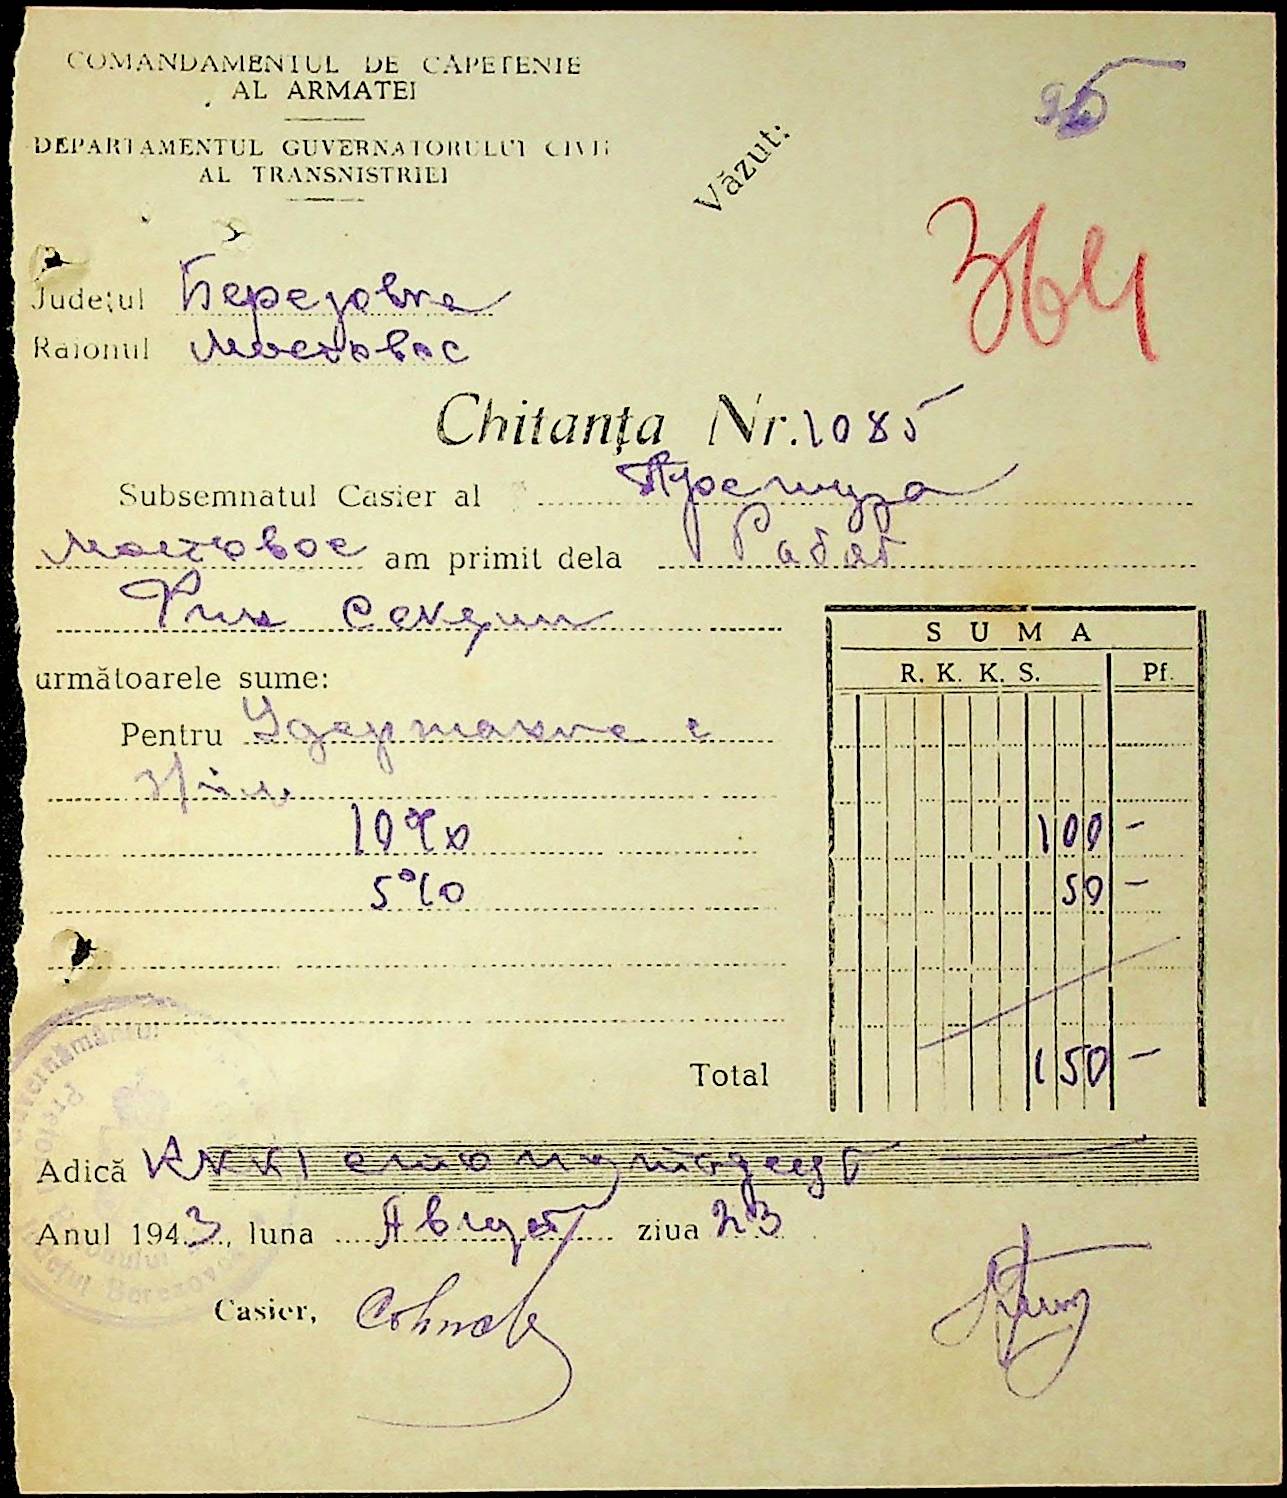 COMANDAMENTUL DE CAPETENIE
AL ARMATEI
DEPARTAMENTUL GUVERNATORULUI CIVIL
AL TRANSNISTRIEI
Văzut:
95
364
Județul Березовка
Raionul Мостовое
Chitanța Nr. 1085
Subsemnatul Casier al Претура
Мостовое am primit dela Радат
următoarele sume:
SUMA
R. K. K. S. Pf.
Pentru Удержание с
10% 100 —
5% 50 —
Total 150 —
Adică RKKS сто пятьдесят
Anul 1943, luna Август ziua 23
Casier,